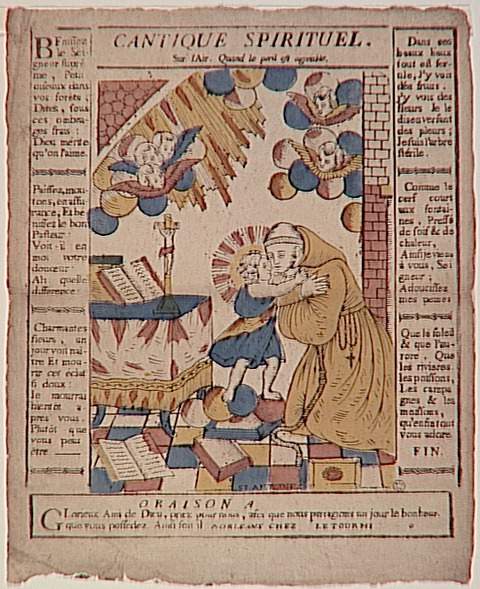 CANTIQUE SPIRITUEL.
Sur l'Air. Quand le peril est agreable.
BEnissez
le Sei
gneur suprê
me, Petit
oiseaux dans
vos forets ;
Dites, sous
ces ombra-
ges frais :
Dieu merite
qu'on l'aime.
Paissez, mou-
tons, en assu
rance, Et be
nissez le bon
Pasteur :
Voit-il en
moi votre
douceur ?
Ah quelle
difference !
Charmantes
fleurs, un
jour voit naî-
tre Et mou-
rir cet éclat
si doux :
Je mourrai
bientôt
près vous.
Plutôt que
vous peut
être.
Dans ces
beaux lieux
tout est fer-
tile, J'y voi
des fruits,
J'y vois des
fleurs Je le
dis en versant
des pleurs ;
Je suis l'arbre
sterile.
Comme le
cerf court
aux fontai-
nes, Pressé
de soif & de
chaleur,
Ainsi je viens
à vous, Sei
gneur ;
Adoucissez
mes peines
Que le soleil
& que l'au-
rore, Que
les rivieres,
les poissons,
Les campa
gnes & les
moissons,
qu'enfin tout
vous adore.
FIN.
ST ANTOINE
ORAISON A
GLorieux Ami de Dieu, priez pour nous, afin que nous partagions un jour le bonheur.
que vous possedez. Ainsi soit il A ORLEANS CHEZ LETOURMI